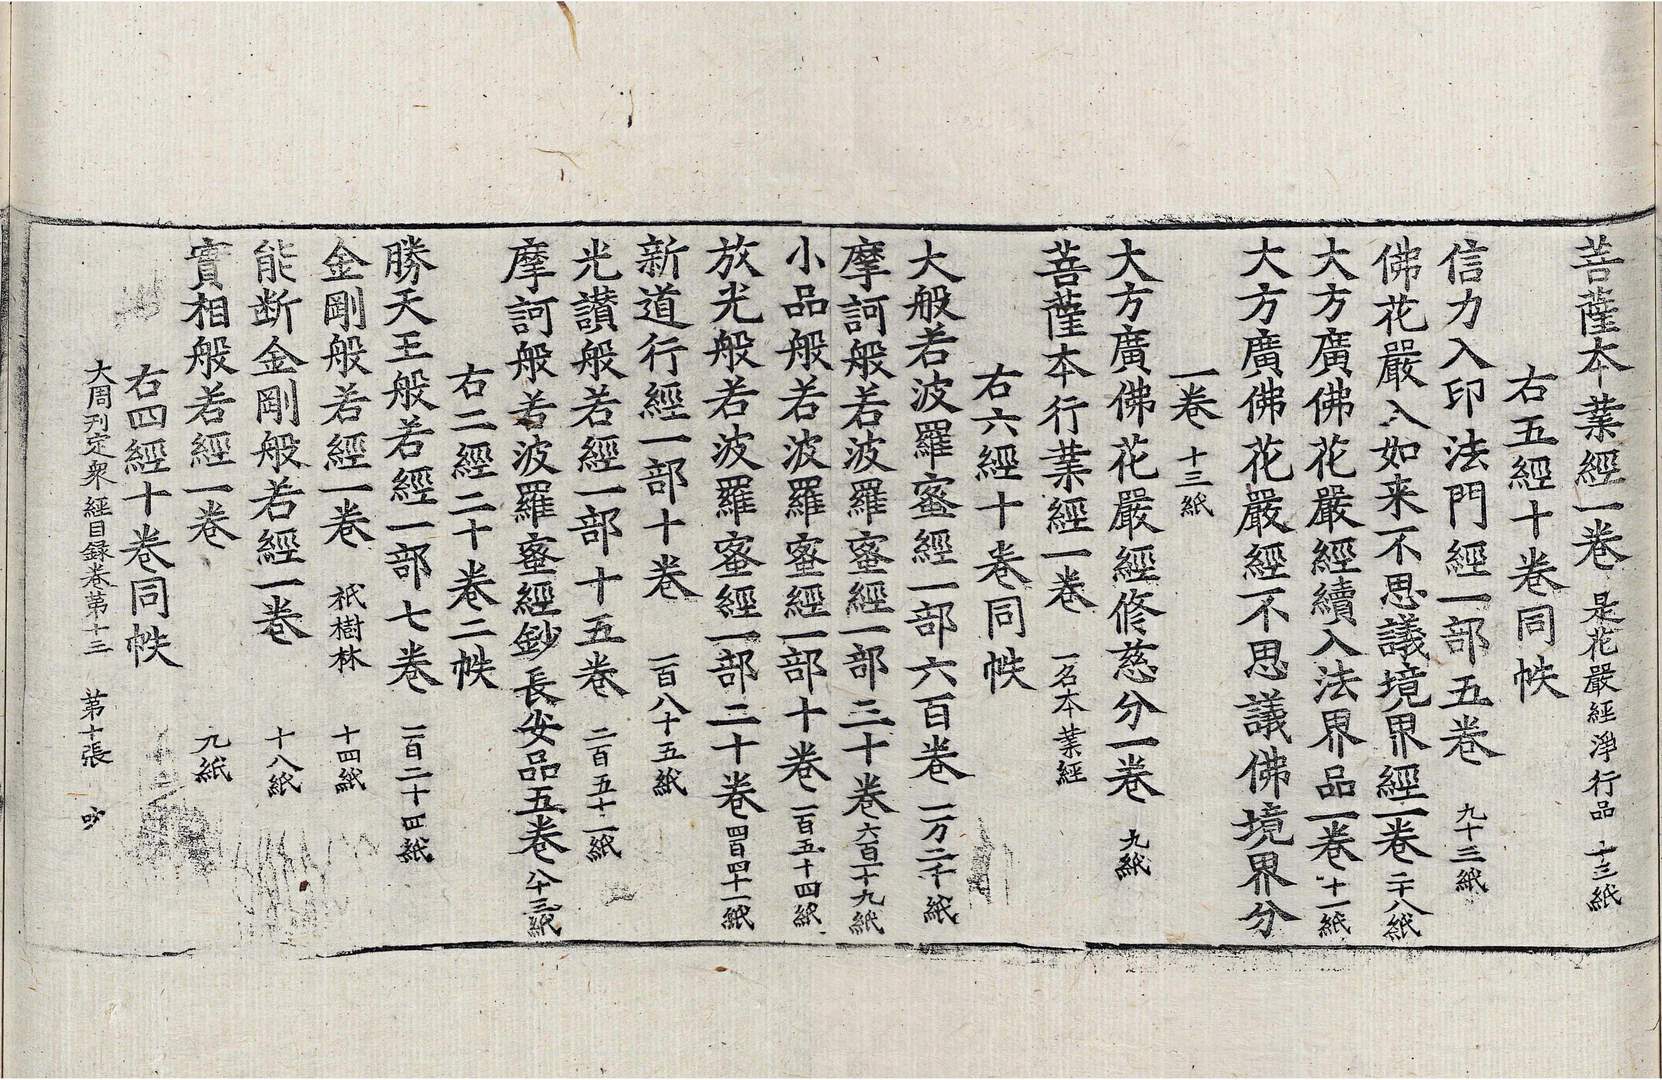 菩薩本業經一卷 是花嚴經淨行品 十三紙
右五經十卷同帙
信力入印法門經一部五卷 九十三紙
佛花嚴入如来不思議境界經二卷 二十八紙
大方廣佛花嚴經續入法界品一卷 十一紙
大方廣佛花嚴經不思議佛境界分
一卷 十三紙
大方廣佛花嚴經修慈分一卷 九紙
菩薩本行業經一卷 一名本業經
右六經十卷同帙
大般若波羅蜜經一部六百卷 一万二千紙
摩訶般若波羅蜜經一部三十卷 六百二十九紙
小品般若波羅蜜經一部十卷 一百五十四紙
放光般若波羅蜜經一部二十卷 四百四十一紙
新道行經一部十卷 一百八十五紙
光讃般若經一部十五卷 二百五十一紙
摩訶般若波羅蜜經鈔長安品五卷 八十三紙
右二經二十卷二帙
勝天王般若經一部七卷 一百二十四紙
金剛般若經一卷 祇樹林 十四紙
能断金剛般若經一卷 十八紙
實相般若經一卷 九紙
右四經十卷同帙
大周刋定衆經目録卷苐十三 苐十張 吵